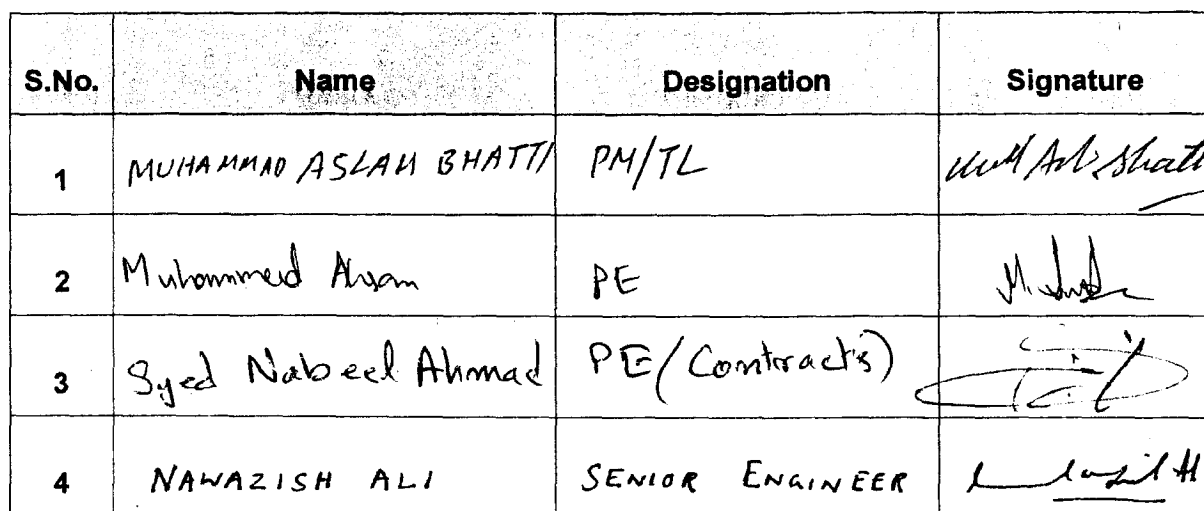 S.No. Name Designation Signature
1 MUHAMMAD ASLAM BHATTI PM/TL
2 Muhammed Ahsan PE
3 Syed Nabeel Ahmad PE/(Contracts)
4 NAWAZISH ALI SENIOR ENGINEER